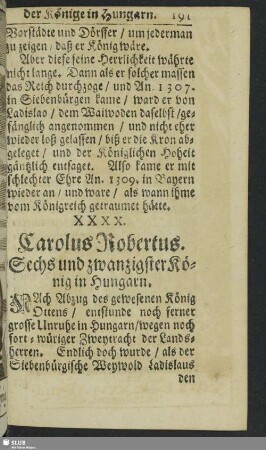 der Könige in Hungarn. 191
Vorstädte und Dörffer / um jederman
zu zeigen / daß er König wäre.
Aber diese seine Herrlichkeit währte
nicht lange. Dann als er solcher massen
das Reich durchzoge / und An. 1307.
in Siebenbürgen kame / ward er von
Ladislao / dem Waiwoden daselbst / ge-
fänglich angenommen / und nicht eher
wieder loß gelassen / biß er die Kron ab-
geleget / und der Königlichen Hoheit
gäntzlich entsaget. Also kame er mit
schlechter Ehre An. 1309. in Bayern
wieder an / und ware / als wann ihme
vom Königreich getraumet hätte.
XXXX.
Carolus Robertus.
Sechs und zwanzigster Kö-
nig in Hungarn.
NAch Abzug des gewesenen König
Ottens / entstunde noch ferner
grosse Unruhe in Hungarn / wegen noch
fort-würiger Zweytracht der Lands-
herren. Endlich doch wurde / als der
Siebenbürgische Weywold Ladislaus
den
SLUB